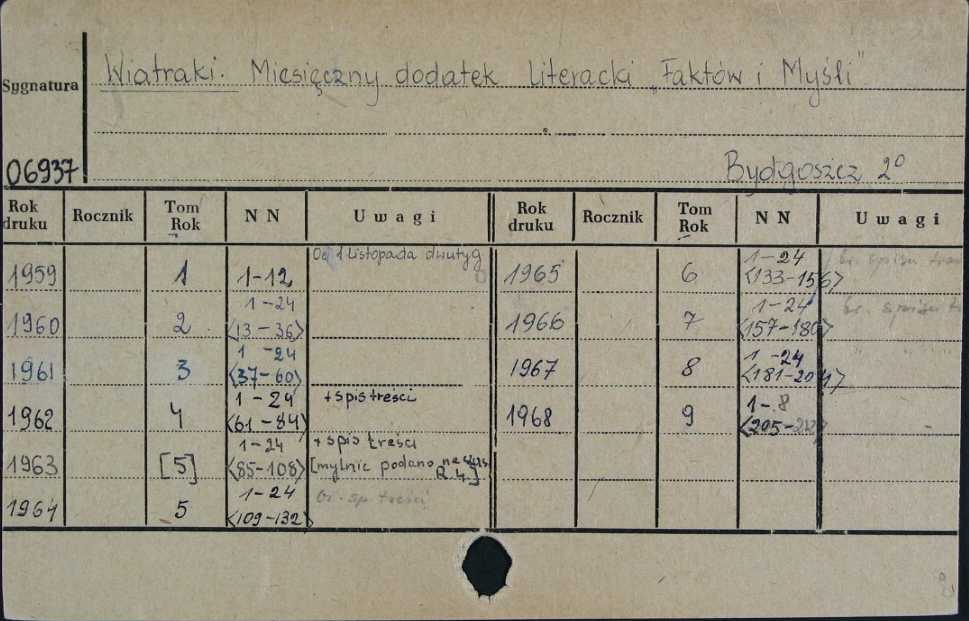 Sygnatura
Wiatraki. Miesięczny dodatek Literacki „Faktów i Myśli"
06937
Bydgoszcz 2°
Rok druku Rocznik Tom Rok NN Uwagi Rok druku Rocznik Tom Rok NN Uwagi
1959 1 1-12 Od 1 Listopada dwutyg
1960 2 1-24 <13-36>
1961 3 1-24 <37-60>
1962 4 1-24 <61-84> + spis treści
1963 [5] 1-24 <85-108> + spis treści [mylnie podano R.4.]
1964 5 1-24 <109-132> br. sp. treści
1965 6 1-24 <133-156> br. spisu
1966 7 1-24 <157-180> br. spisu
1967 8 1-24 <181-204>
1968 9 1-8 <205-212>